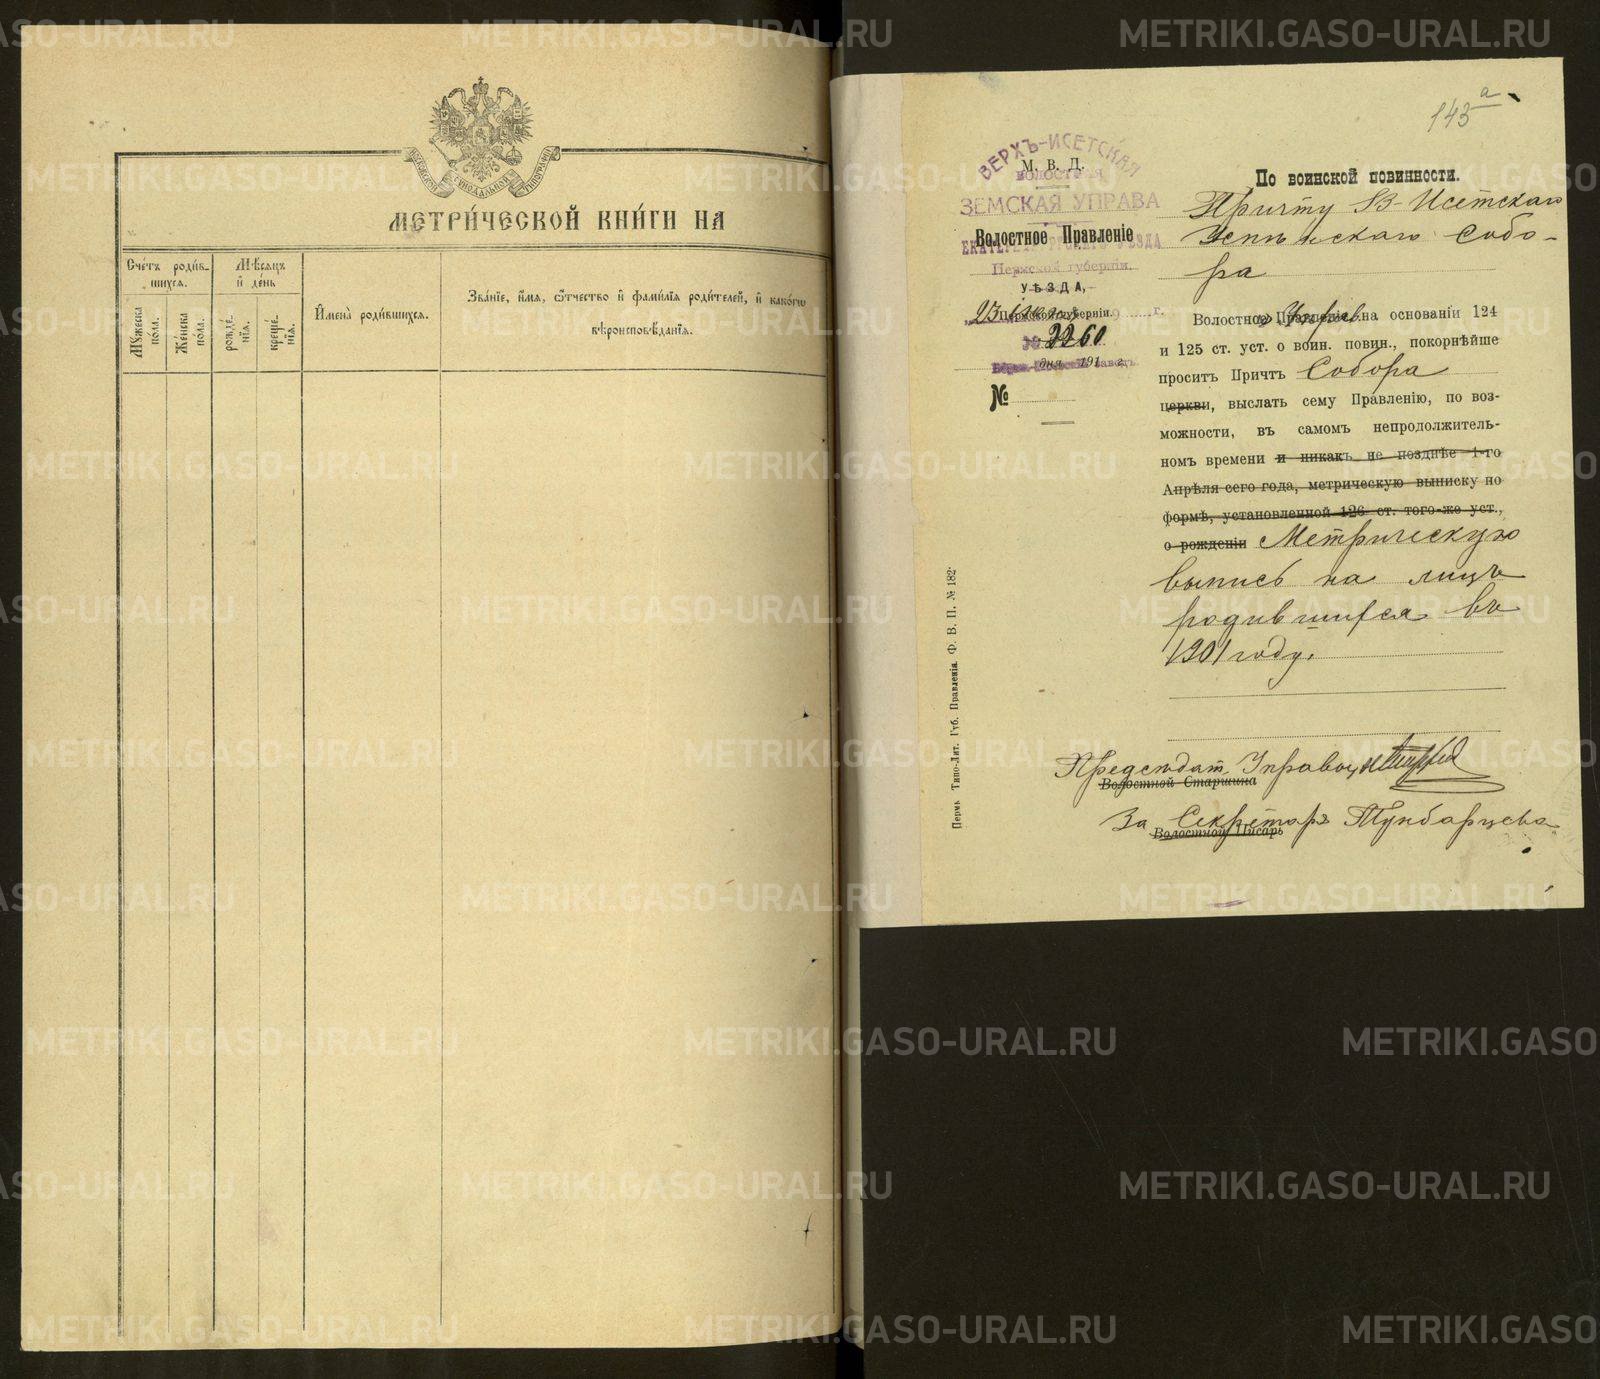 МОСКОВСКОЙ СѴНОДАЛЬНОЙ ТИПОГРАФІИ
МЕТРИ́ЧЕСКОЙ КНИ́ГИ НА
Сче́тъ роди́в-
шихся.
Мѣ́сяцъ
и҆ де́нь
Мꙋ́жеска
по́ла.
Же́нска
по́ла.
рожде́-
нїѧ.
креще́-
нїѧ.
И҆мена̀ роди́вшихсѧ.
Зва́нїе, и҆́мѧ, ѻ҆́тчество и҆ фами́лїѧ роди́телей, и҆ како́гѡ
вѣроисповѣ́данїѧ.
143 а
ВЕРХЪ-ИСЕТСКАЯ
М. В. Д.
ВОЛОСТНАЯ
ЗЕМСКАЯ УПРАВА
Волостное Правленіе
Пермской губерніи.
УѢЗДА,
Пермской губерніи.
№ 2260
дня 191 г.
№
По воинской повинности.
Причту В-Исетскаго
Успенскаго Собо-
ра
Волостное Правленіе на основаніи 124
и 125 ст. уст. о воин. повин., покорнѣйше
проситъ Причтъ Собора
церкви, выслать сему Правленію, по воз-
можности, въ самомъ непродолжитель-
номъ времени и никакъ не позднѣе 1-го
Апрѣля сего года, метрическую выписку по
формѣ, установленной 126 ст. того-же уст.,
о рожденіи Метрическую
выпись на лицъ
родившихся въ
1901 году.
Председат. Управы
Волостной Старшина
За Секретаря
Волостной Писарь
Пермь. Типо-Лит. Губ. Правленія. Ф. В. П. № 182
METRIKI.GASO-URAL.RU